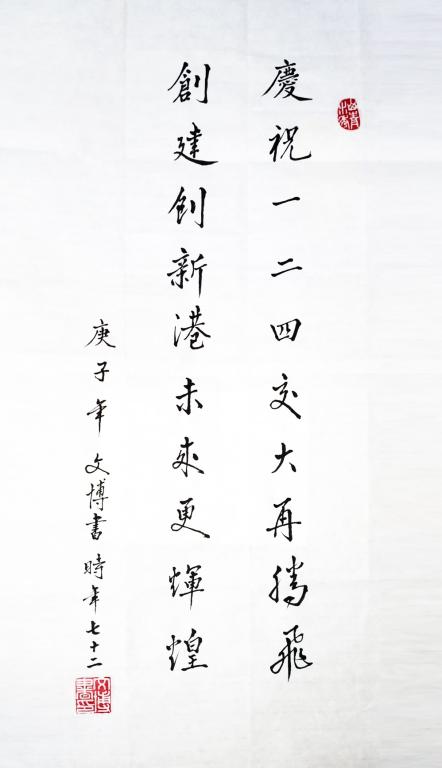 慶祝一二四交大再騰飛
創建創新港未來更輝煌
庚子年文博書時年七十二